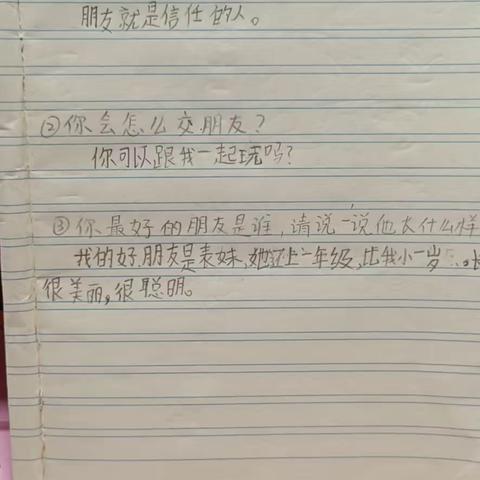 朋友就是信任的人。
②你会怎么交朋友?
你可以跟我一起玩吗?
③你最好的朋友是谁,请说一说他长什么样
我的好朋友是表妹,她上一年级,比我小一岁
很美丽,很聪明。